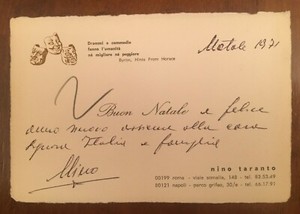 Drammi e commedie
fanno l'umanità
né migliore né peggiore
Byron, Hints From Horace
Natale 1971
Buon Natale e felice
anno nuovo assieme alla cara
Signora Italia e famiglia
Nino
nino taranto
00199 roma - viale somalia, 148 - tel. 83.53.49
80121 napoli - parco grifeo, 30/a - tel. 66.17.91